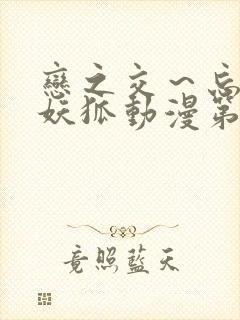 戀之交～忘
妖狐動漫第
竟照藍天